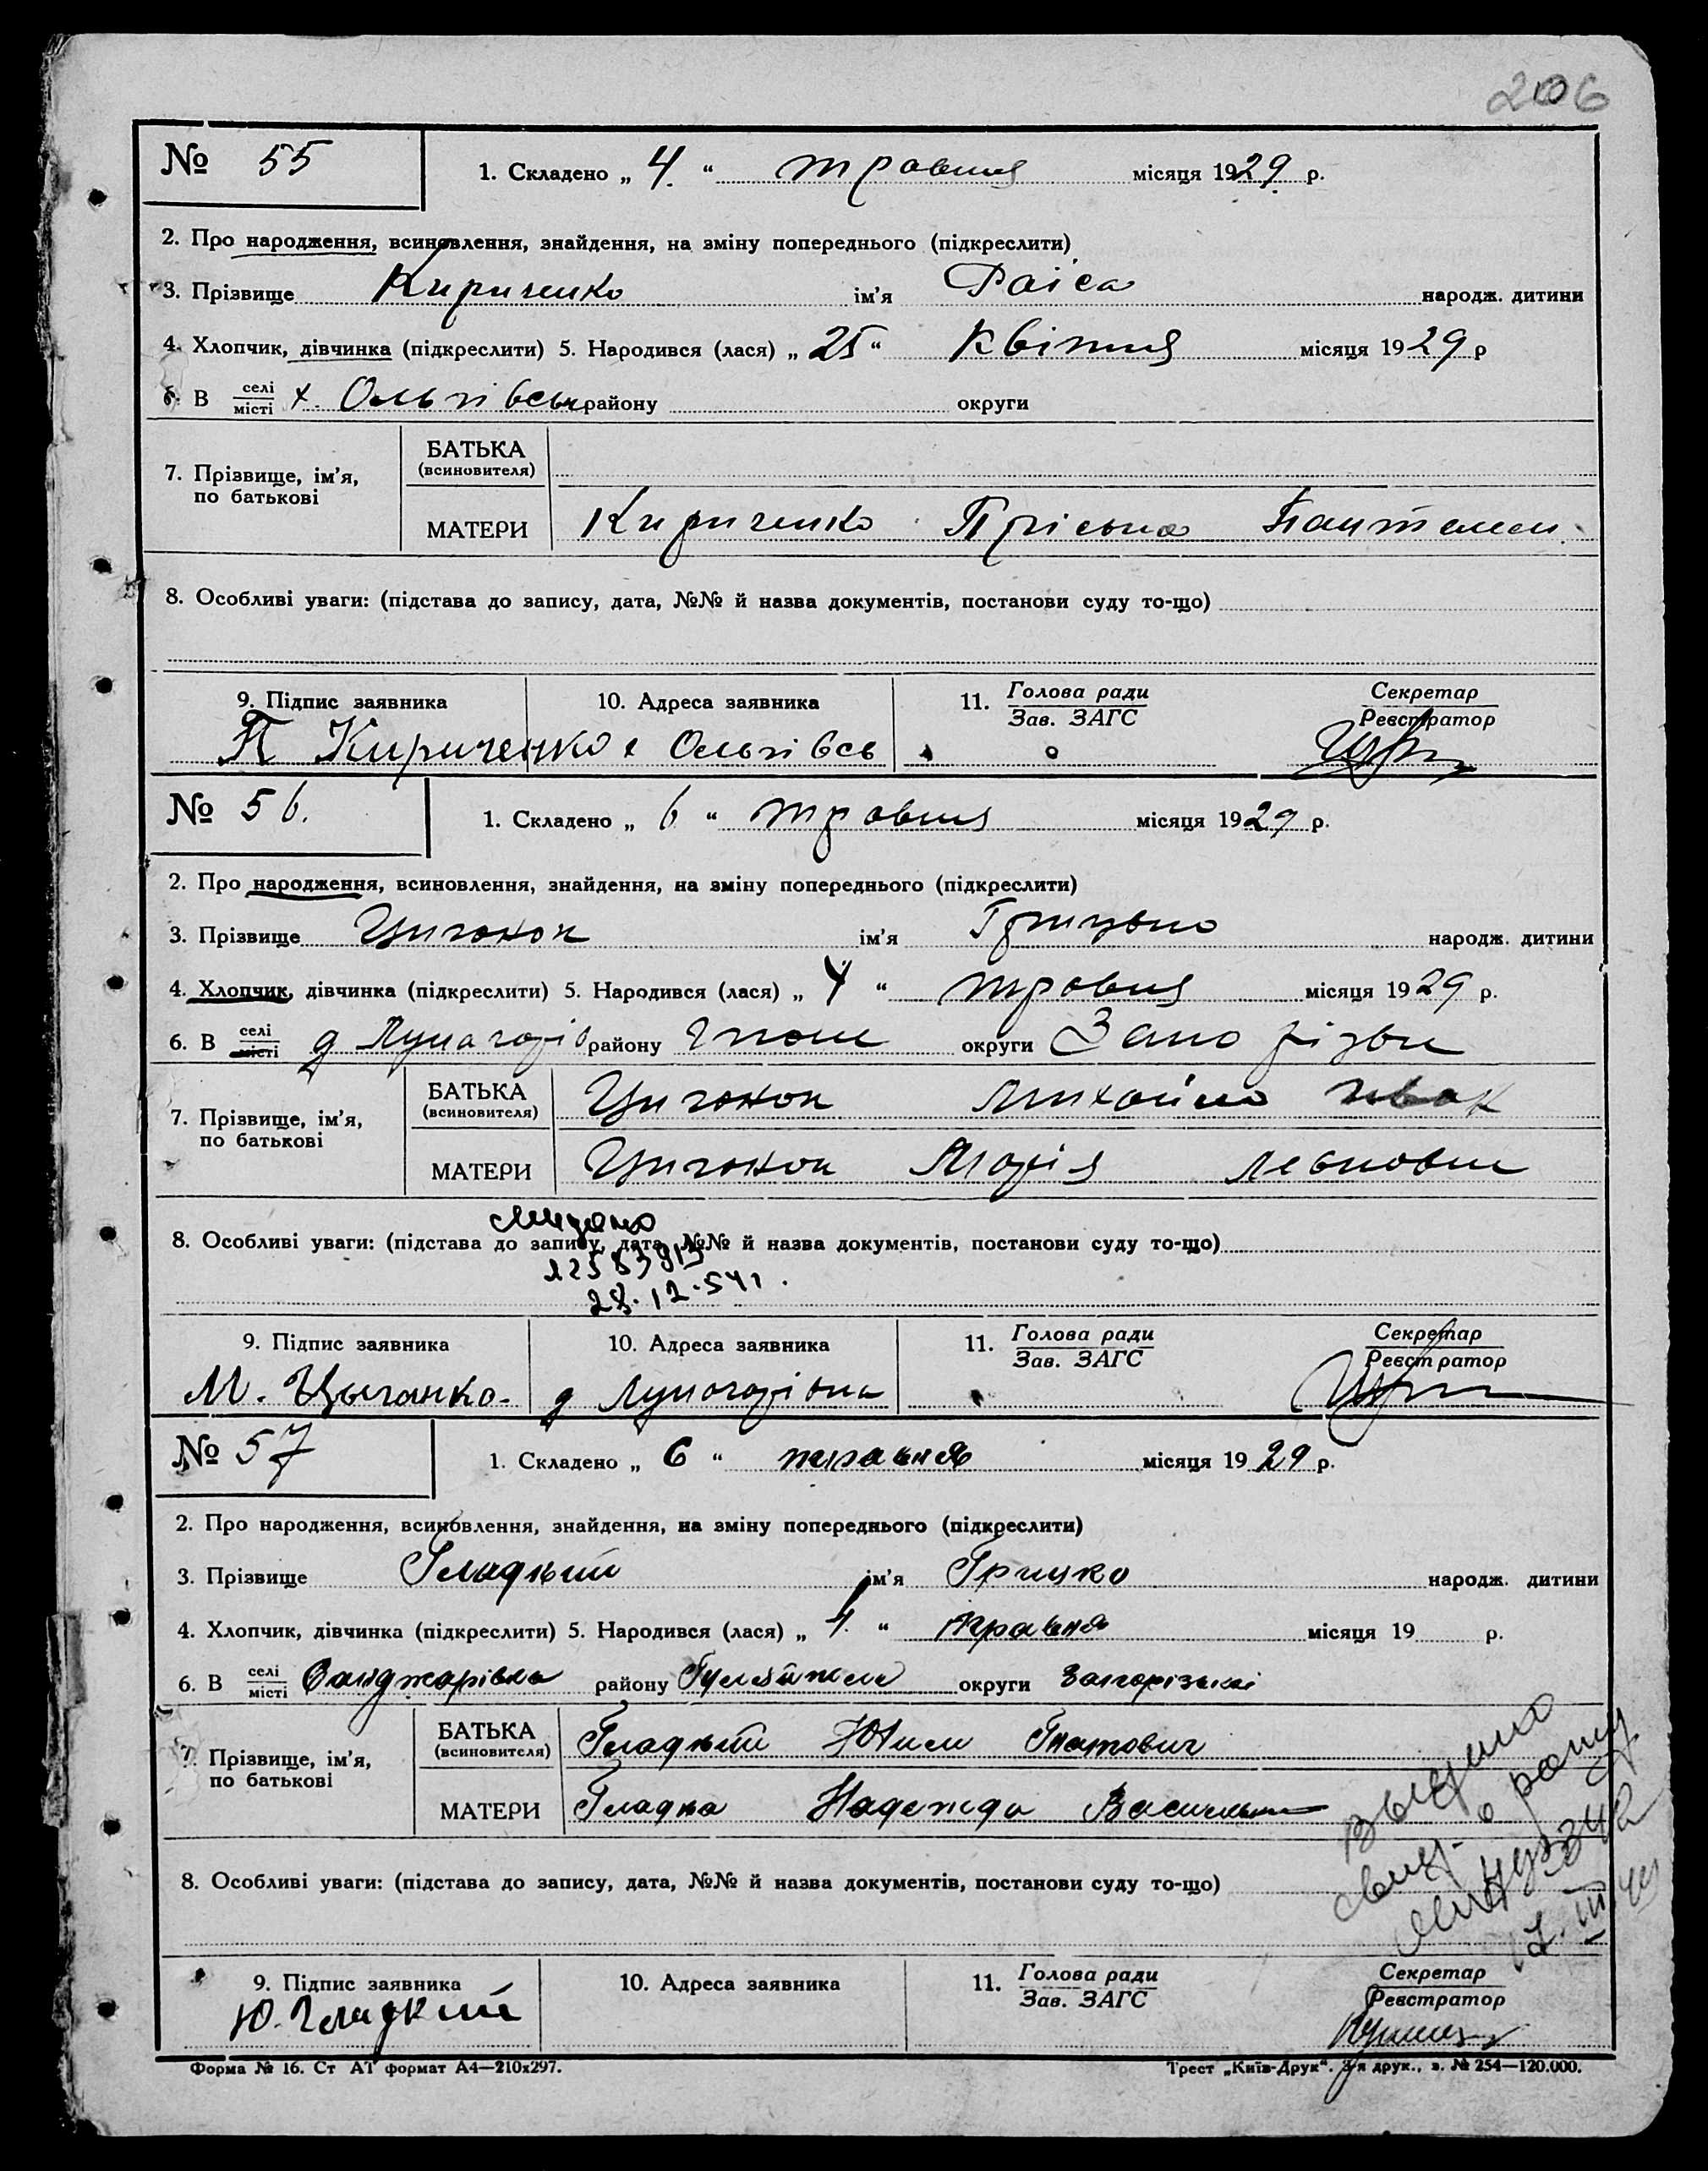 206
№ 55
1. Складено „ 4. “ травня місяця 1929 р.
2. Про народження, всиновлення, знайдення, на зміну попереднього (підкреслити)
3. Прізвище Кириченко ім'я Раіса народж. дитини
4. Хлопчик, дівчинка (підкреслити) 5. Народився (лася) „ 25 “ квітня місяця 1929 р
6. В селі місті х. Ольгівськ району округи
7. Прізвище, ім'я, по батькові
БАТЬКА (всиновителя)
МАТЕРИ Кириченко Пріська Пантелем.
8. Особливі уваги: (підстава до запису, дата, №№ й назва документів, постанови суду то-що)
9. Підпис заявника 10. Адреса заявника 11. Голова ради Зав. ЗАГС Секретар Реєстратор
П Кириченко х Ольгівсь
№ 56.
1. Складено „ 6 “ травня місяця 1929 р.
2. Про народження, всиновлення, знайдення, на зміну попереднього (підкреслити)
3. Прізвище Циганок ім'я народж. дитини
4. Хлопчик, дівчинка (підкреслити) 5. Народився (лася) „ 4 “ травня місяця 1929 р.
6. В селі місті д району округи
7. Прізвище, ім'я, по батькові
БАТЬКА (всиновителя) Циганок Михайло
МАТЕРИ Циганок Марія
8. Особливі уваги: (підстава до запису, дата, №№ й назва документів, постанови суду то-що)
9. Підпис заявника 10. Адреса заявника 11. Голова ради Зав. ЗАГС Секретар Реєстратор
М. Цыганко. д
№ 57
1. Складено „ 6 “ травня місяця 1929 р.
2. Про народження, всиновлення, знайдення, на зміну попереднього (підкреслити)
3. Прізвище Гладкий ім'я Грицко народж. дитини
4. Хлопчик, дівчинка (підкреслити) 5. Народився (лася) „ 4. “ травня місяця 19 р.
6. В селі місті Санджарівка району округи Запорізькі
7. Прізвище, ім'я, по батькові
БАТЬКА (всиновителя) Гладкий Юхим Гнатович
МАТЕРИ Гладка Надежда
8. Особливі уваги: (підстава до запису, дата, №№ й назва документів, постанови суду то-що)
9. Підпис заявника 10. Адреса заявника 11. Голова ради Зав. ЗАГС Секретар Реєстратор
Ю. Гладкий
Форма № 16. Ст АТ формат А4—210x297. Трест „Київ-Друк“. 3-я друк., з. № 254—120.000.